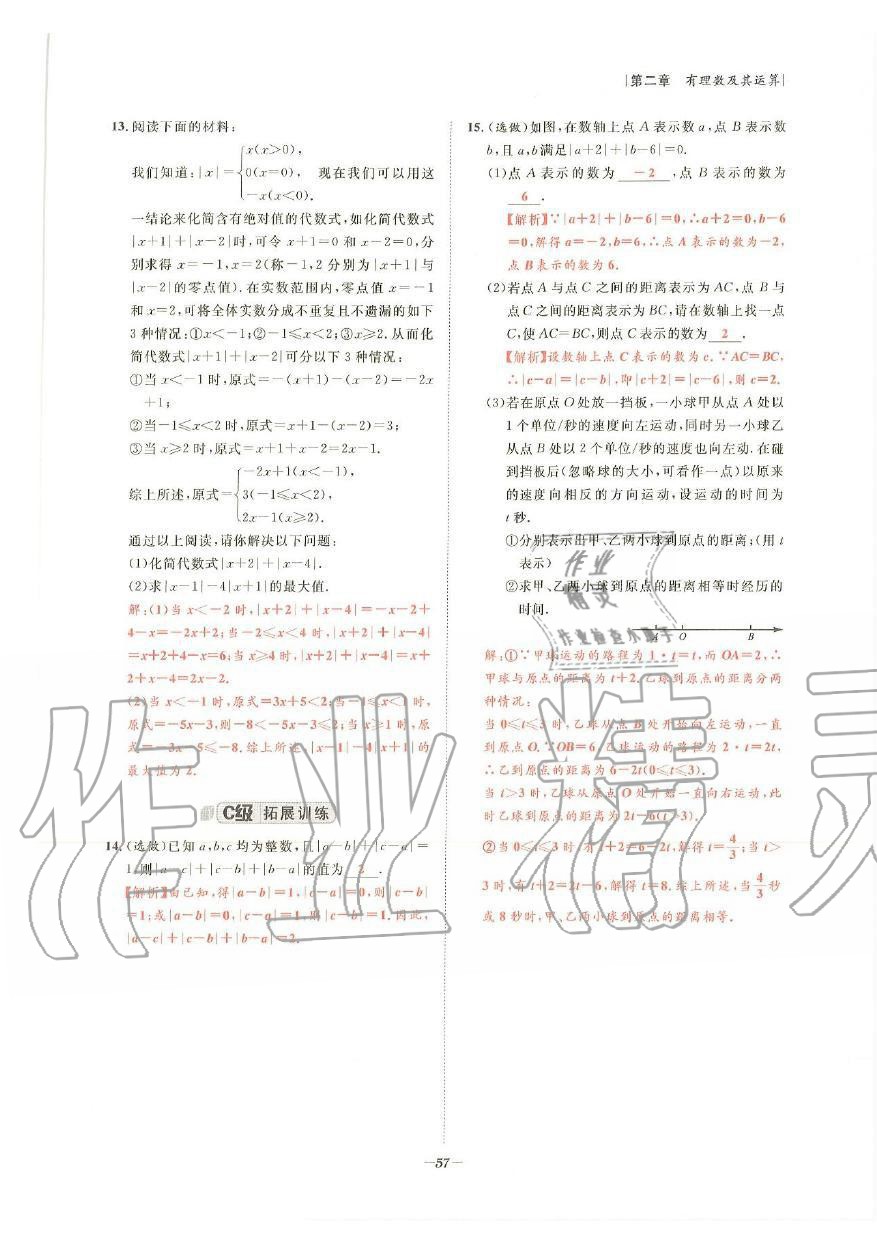 第二章 有理数及其运算
13.阅读下面的材料:
x(x>0),
我们知道:|x|= 0(x=0), 现在我们可以用这
-x(x<0).
一结论来化简含有绝对值的代数式,如化简代数式
|x+1|+|x-2|时,可令x+1=0和x-2=0,分
别求得x=-1,x=2(称-1,2分别为|x+1|与
|x-2|的零点值).在实数范围内,零点值x=-1
和x=2,可将全体实数分成不重复且不遗漏的如下
3种情况:①x<-1;②-1≤x<2;③x≥2.从而化
简代数式|x+1|+|x-2|可分以下3种情况:
①当x<-1时,原式=-(x+1)-(x-2)=-2x
+1;
②当-1≤x<2时,原式=x+1-(x-2)=3;
③当x≥2时,原式=x+1+x-2=2x-1.
-2x+1(x<-1),
综上所述,原式= 3(-1≤x<2),
2x-1(x≥2).
通过以上阅读,请你解决以下问题:
(1)化简代数式|x+2|+|x-4|.
(2)求|x-1|-4|x+1|的最大值.
解:(1)当x<-2时,|x+2|+|x-4|=-x-2+
4-x=-2x+2;当-2≤x<4时,|x+2|+|x-4|
=x+2+4-x=6;当x≥4时,|x+2|+|x-4|=x+
2+x-4=2x-2.
(2)当x<-1时,原式=3x+5<2;当-1≤x<1时,
原式=-5x-3,则-8<-5x-3≤2;当x≥1时,原
式=-3x-5≤-8.综上所述,|x-1|-4|x+1|的
最大值为2.
C级 拓展训练
14.(选做)已知a,b,c均为整数,且|a-b|+|c-a|=
1,则|a-c|+|c-b|+|b-a|的值为 2 .
【解析】由已知,得|a-b|=1,|c-a|=0,则|c-b|
=1;或|a-b|=0,|c-a|=1,则|c-b|=1.因此,
|a-c|+|c-b|+|b-a|=2.
15.(选做)如图,在数轴上点A表示数a,点B表示数
b,且a,b满足|a+2|+|b-6|=0.
(1)点A表示的数为 -2 ,点B表示的数为
6 .
【解析】∵|a+2|+|b-6|=0,∴a+2=0,b-6
=0,解得a=-2,b=6,∴点A表示的数为-2,
点B表示的数为6.
(2)若点A与点C之间的距离表示为AC,点B与
点C之间的距离表示为BC,请在数轴上找一点
C,使AC=BC,则点C表示的数为 2 .
【解析】设数轴上点C表示的数为c.∵AC=BC,
∴|c-a|=|c-b|,即|c+2|=|c-6|,则c=2.
(3)若在原点O处放一挡板,一小球甲从点A处以
1个单位/秒的速度向左运动,同时另一小球乙
从点B处以2个单位/秒的速度也向左动.在碰
到挡板后(忽略球的大小,可看作一点)以原来
的速度向相反的方向运动,设运动的时间为
t秒.
①分别表示出甲、乙两小球到原点的距离;(用t
表示)
②求甲、乙两小球到原点的距离相等时经历的
时间.
A O B
解:①∵甲球运动的路程为1·t=t,而OA=2,∴
甲球与原点的距离为t+2.乙球到原点的距离分两
种情况:
当0≤t≤3时,乙球从点B处开始向左运动,一直
到原点O.∵OB=6,乙球运动的路程为2·t=2t,
∴乙到原点的距离为6-2t(0≤t≤3).
当t>3时,乙球从原点O处开始一直向右运动,此
时乙球到原点的距离为2t-6(t>3).
②当0≤t≤3时,有t+2=6-2t,解得t=4/3;当t>
3时,有t+2=2t-6,解得t=8.综上所述,当4/3秒
或8秒时,甲、乙两小球到原点的距离相等.
作业精灵
作业
精灵
作业检查小助手
—57—